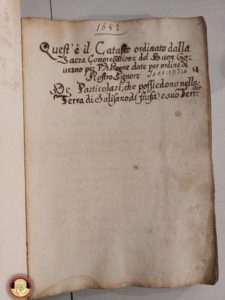 1642
Quest' è il Catasto ordinato dalla
Sacra Congregatione del Buon Go,
uerno per l'Allegre date per ordine di
Nostro Signore XI
De Particolari, che possiedono nella
Terra di Salisano di farfa, e suo Terr: